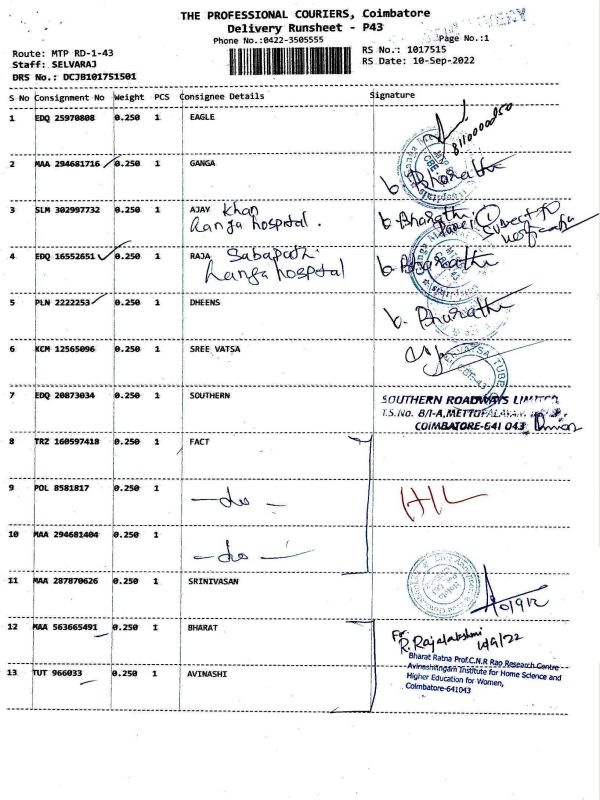 THE PROFESSIONAL COURIERS, Coimbatore
Delivery Runsheet - P43
Phone No.:0422-3505555
Page No.:1
Route: MTP RD-1-43
Staff: SELVARAJ
DRS No.: DCJB101751501
RS No.: 1017515
RS Date: 10-Sep-2022
S No Consignment No Weight PCS Consignee Details Signature
1 EDQ 25970808 0.250 1 EAGLE
2 MAA 294681716 0.250 1 GANGA b. Bharathi
3 SLM 302997732 0.250 1 AJAY Khan b. Bharathi
Ganga hospital.
4 EDQ 16552651 0.250 1 RAJA Sabapathi b. Bharathi
Ganga hospital
5 PLN 2222253 0.250 1 DHEENS b. Bharathi
6 KCM 12565096 0.250 1 SREE VATSA
7 EDQ 20873034 0.250 1 SOUTHERN
SOUTHERN ROADWAYS LIMITED
T.S.No. 8/1-A, METTUPALAYAM
COIMBATORE-641 043
8 TRZ 160597418 0.250 1 FACT
9 POL 8581817 0.250 1 - do -
10 MAA 294681404 0.250 1 - do -
11 MAA 287870626 0.250 1 SRINIVASAN
12 MAA 563665491 0.250 1 BHARAT
For
R. Rajalakshmi
Bharat Ratna Prof.C.N.R Rao Research Centre
Avinashilingam Institute for Home Science and
Higher Education for Women,
Coimbatore-641043
13 TUT 966033 0.250 1 AVINASHI